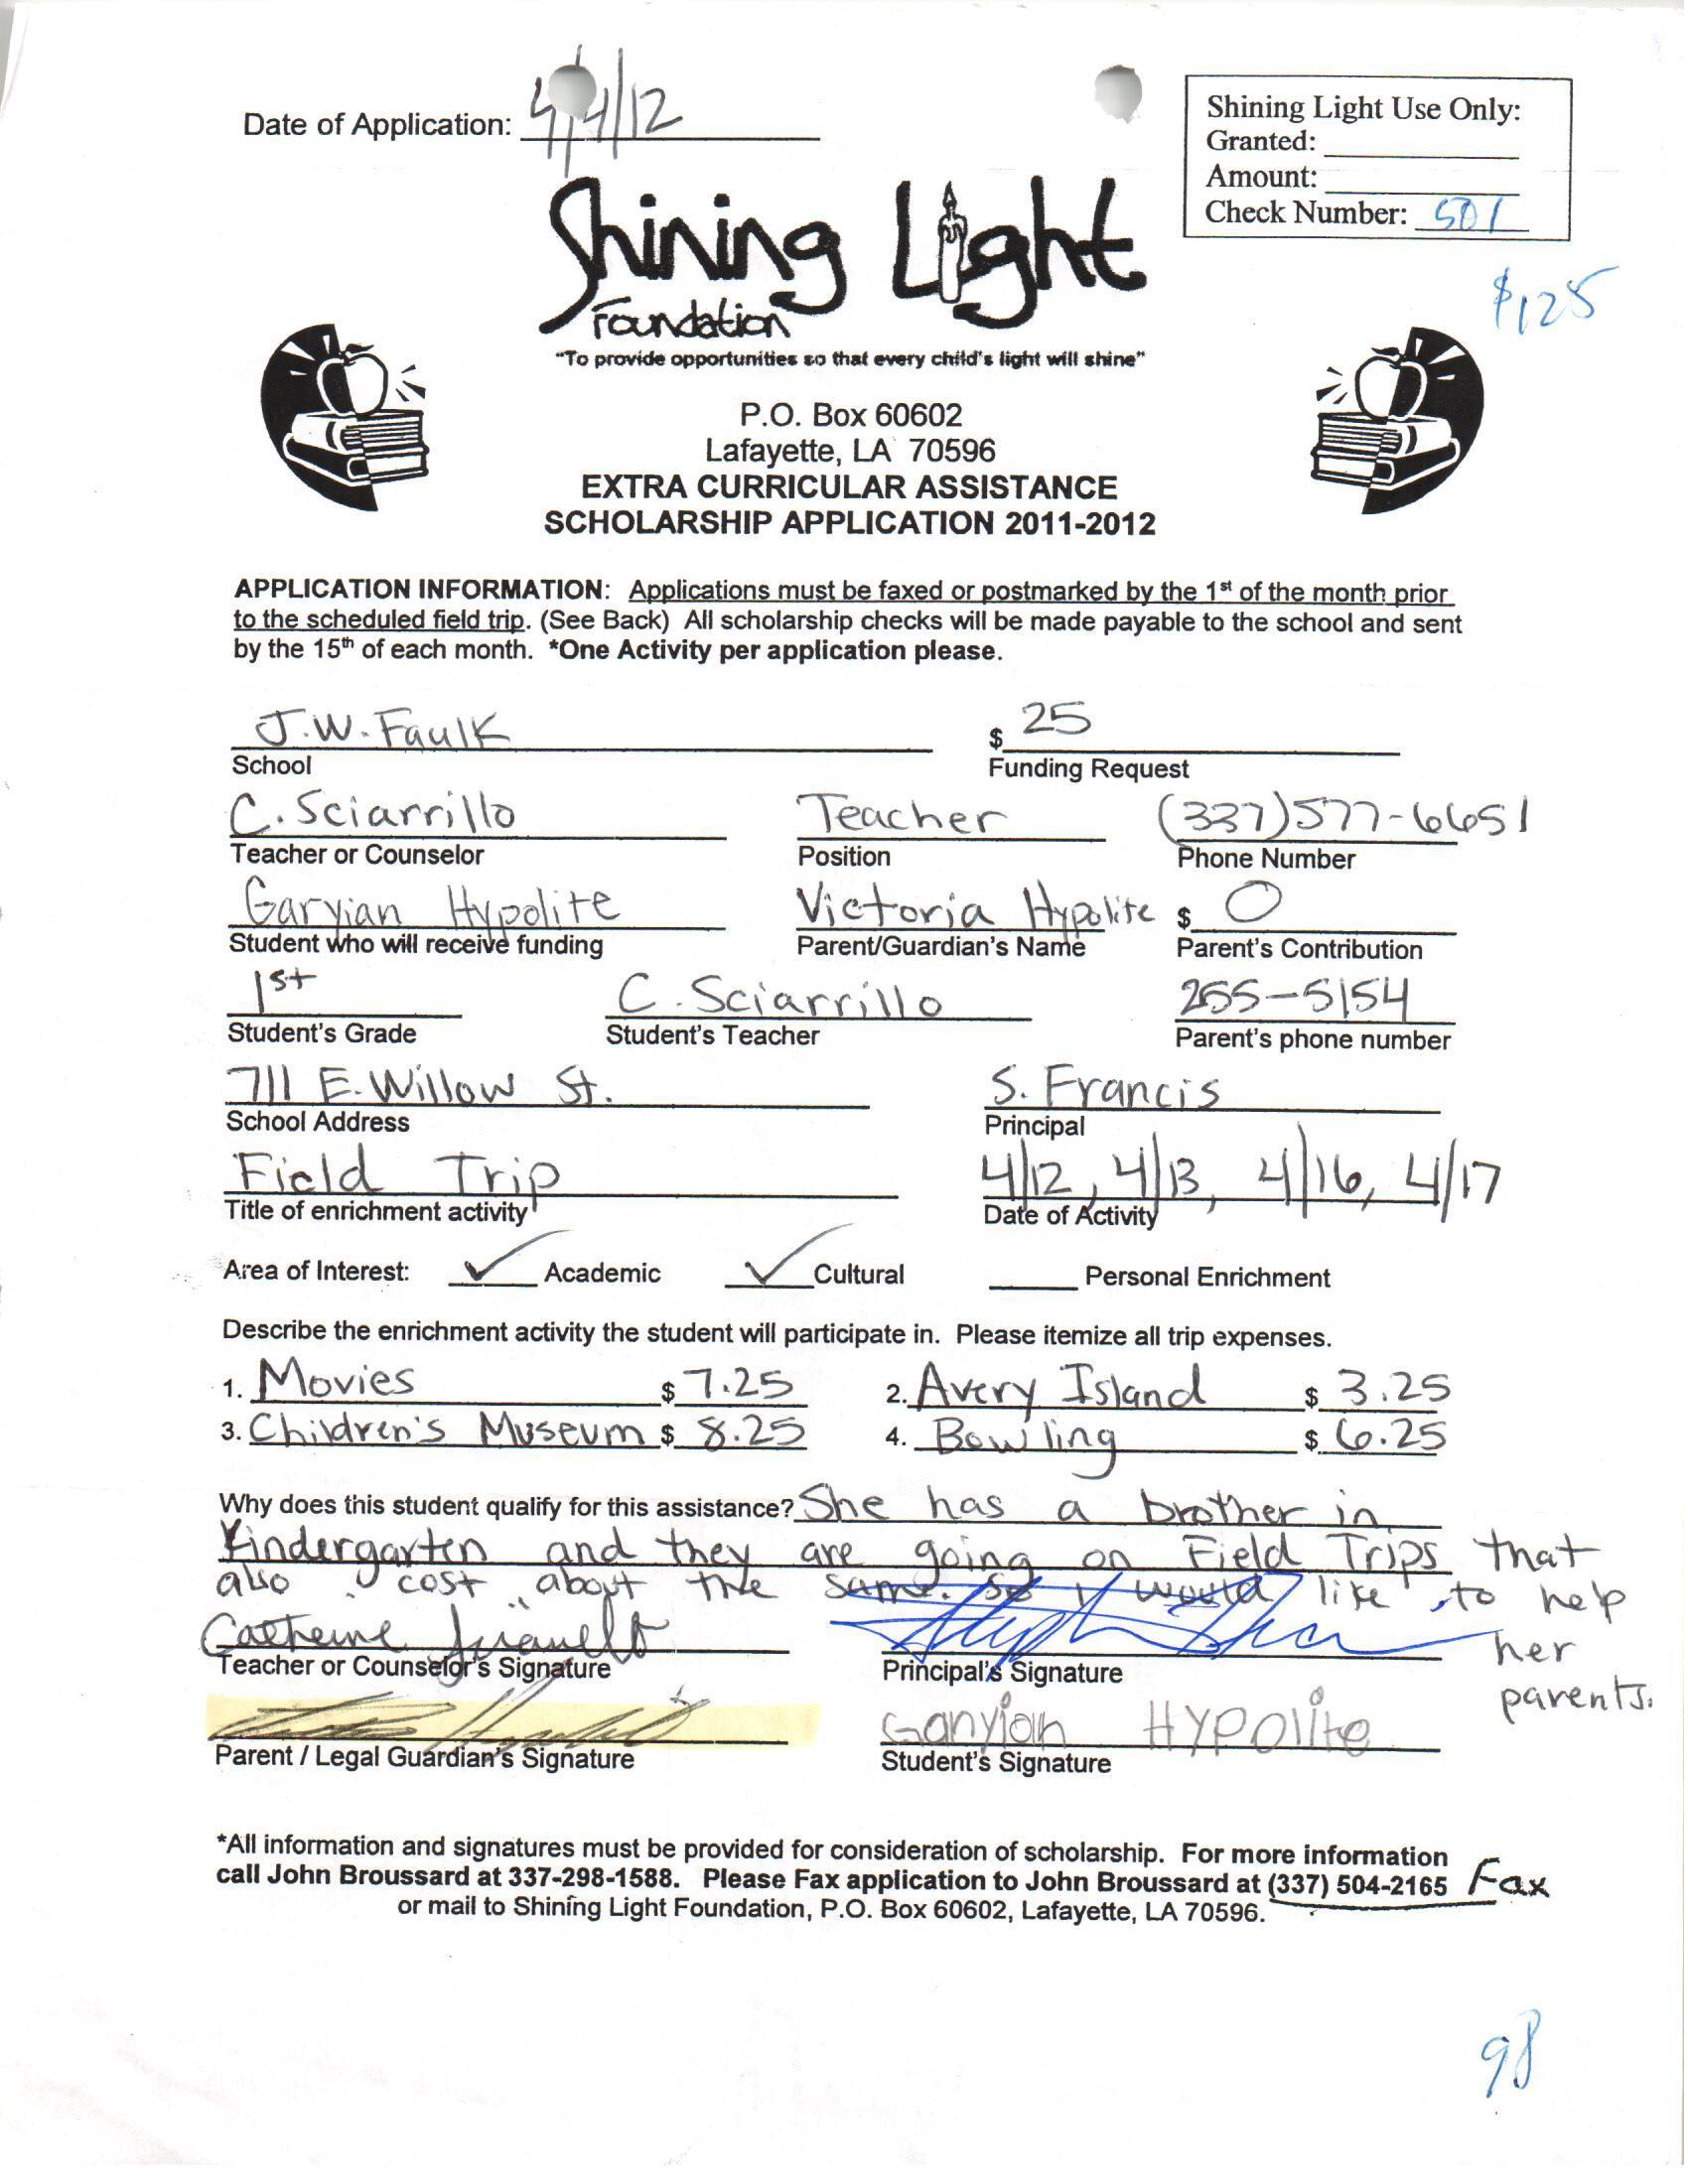 Date of Application: 4/4/12
Shining Light Use Only:
Granted:
Amount:
Check Number: 501
$125
Shining Light
Foundation
"To provide opportunities so that every child's light will shine"
P.O. Box 60602
Lafayette, LA 70596
EXTRA CURRICULAR ASSISTANCE
SCHOLARSHIP APPLICATION 2011-2012
APPLICATION INFORMATION: Applications must be faxed or postmarked by the 1st of the month prior
to the scheduled field trip. (See Back) All scholarship checks will be made payable to the school and sent
by the 15th of each month. *One Activity per application please.
J.W. Faulk $ 25
School Funding Request
C. Sciarrillo Teacher (337)577-6651
Teacher or Counselor Position Phone Number
Garyian Hypolite Victoria Hypolite $ 0
Student who will receive funding Parent/Guardian's Name Parent's Contribution
1st C. Sciarrillo 255-5154
Student's Grade Student's Teacher Parent's phone number
711 E. Willow St. S. Francis
School Address Principal
Field Trip 4/12, 4/13, 4/16, 4/17
Title of enrichment activity Date of Activity
Area of Interest: ✓ Academic ✓ Cultural Personal Enrichment
Describe the enrichment activity the student will participate in. Please itemize all trip expenses.
1. Movies $ 7.25 2. Avery Island $ 3.25
3. Children's Museum $ 8.25 4. Bowling $ 6.25
Why does this student qualify for this assistance? She has a brother in
Kindergarten and they are going on Field Trips that
also cost about the same. so I would like to help
her
parents.
Catherine
Teacher or Counselor's Signature Principal's Signature
Ganyian Hypolite
Parent / Legal Guardian's Signature Student's Signature
*All information and signatures must be provided for consideration of scholarship. For more information
call John Broussard at 337-298-1588. Please Fax application to John Broussard at (337) 504-2165 Fax
or mail to Shining Light Foundation, P.O. Box 60602, Lafayette, LA 70596.
98